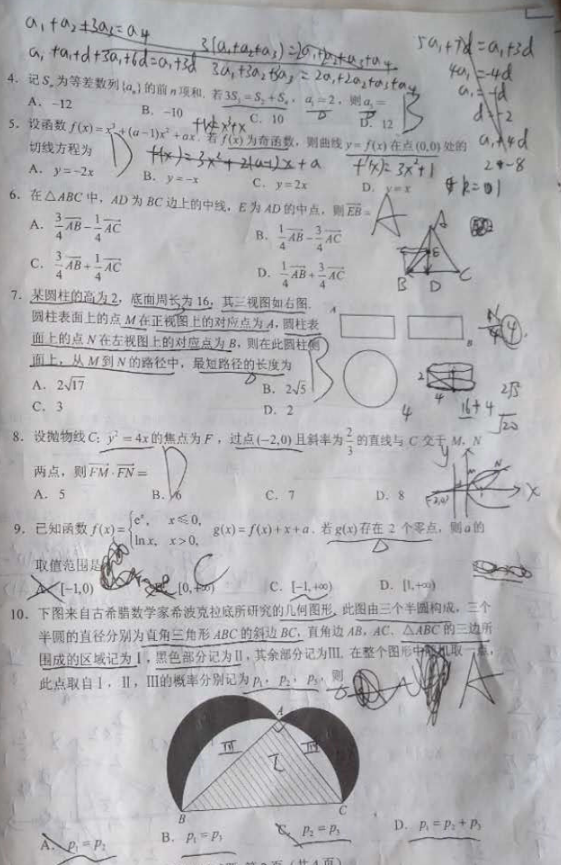 a₁+a₂+3a₃=a₄
3(a₁+a₂+a₃)=2a₁+2a₂+a₃+a₄
a₁+a₁+d+3a₁+6d=a₁+3d
3a₁+3a₂+3a₃=2a₁+2a₂+a₃+a₄
5a₁+7d=a₁+3d
4a₁=-4d
a₁=-d
d=-2
a₁+4d
2+-8
4. 记Sₙ为等差数列{aₙ}的前n项和. 若3S₃=S₂+S₄, a₁=2, 则a₅=
A. -12 B. -10 C. 10 D. 12
B
5. 设函数f(x)=x³+(a-1)x²+ax. 若f(x)为奇函数, 则曲线y=f(x)在点(0,0)处的
切线方程为
D
f(x)=x³+x
f'(x)=3x²+2(a-1)x+a
f'(x)=3x²+1
k=1
A. y=-2x B. y=-x C. y=2x D. y=x
6. 在△ABC中, AD为BC边上的中线, E为AD的中点, 则EB=
A
A. 3/4AB-1/4AC B. 1/4AB-3/4AC
C. 3/4AB+1/4AC D. 1/4AB+3/4AC
A
E
B D C
7. 某圆柱的高为2, 底面周长为16, 其三视图如右图.
圆柱表面上的点M在正视图上的对应点为A, 圆柱表
面上的点N在左视图上的对应点为B, 则在此圆柱侧
面上, 从M到N的路径中, 最短路径的长度为
B
A. 2√17 B. 2√5
C. 3 D. 2
A
B
N
4
2
4
4
16+4
2√5
√20
8. 设抛物线C: y²=4x的焦点为F, 过点(-2,0)且斜率为2/3的直线与C交于M, N
两点, 则FM·FN=
D
A. 5 B. 6 C. 7 D. 8
y
N
(-2,0)
x
9. 已知函数f(x)={eˣ, x≤0,
ln x, x>0,
g(x)=f(x)+x+a. 若g(x)存在2个零点, 则a的
取值范围是
C
A. [-1,0) B. [0,+∞) C. [-1,+∞) D. [1,+∞)
10. 下图来自古希腊数学家希波克拉底所研究的几何图形. 此图由三个半圆构成, 三个
半圆的直径分别为直角三角形ABC的斜边BC, 直角边AB, AC. △ABC的三边所
围成的区域记为Ⅰ, 黑色部分记为Ⅱ, 其余部分记为Ⅲ. 在整个图形中随机取一点,
此点取自Ⅰ, Ⅱ, Ⅲ的概率分别记为p₁, p₂, p₃, 则
A
A
Ⅲ Ⅰ Ⅲ
B C
A. p₁=p₂ B. p₁=p₃ C. p₂=p₃ D. p₁=p₂+p₃